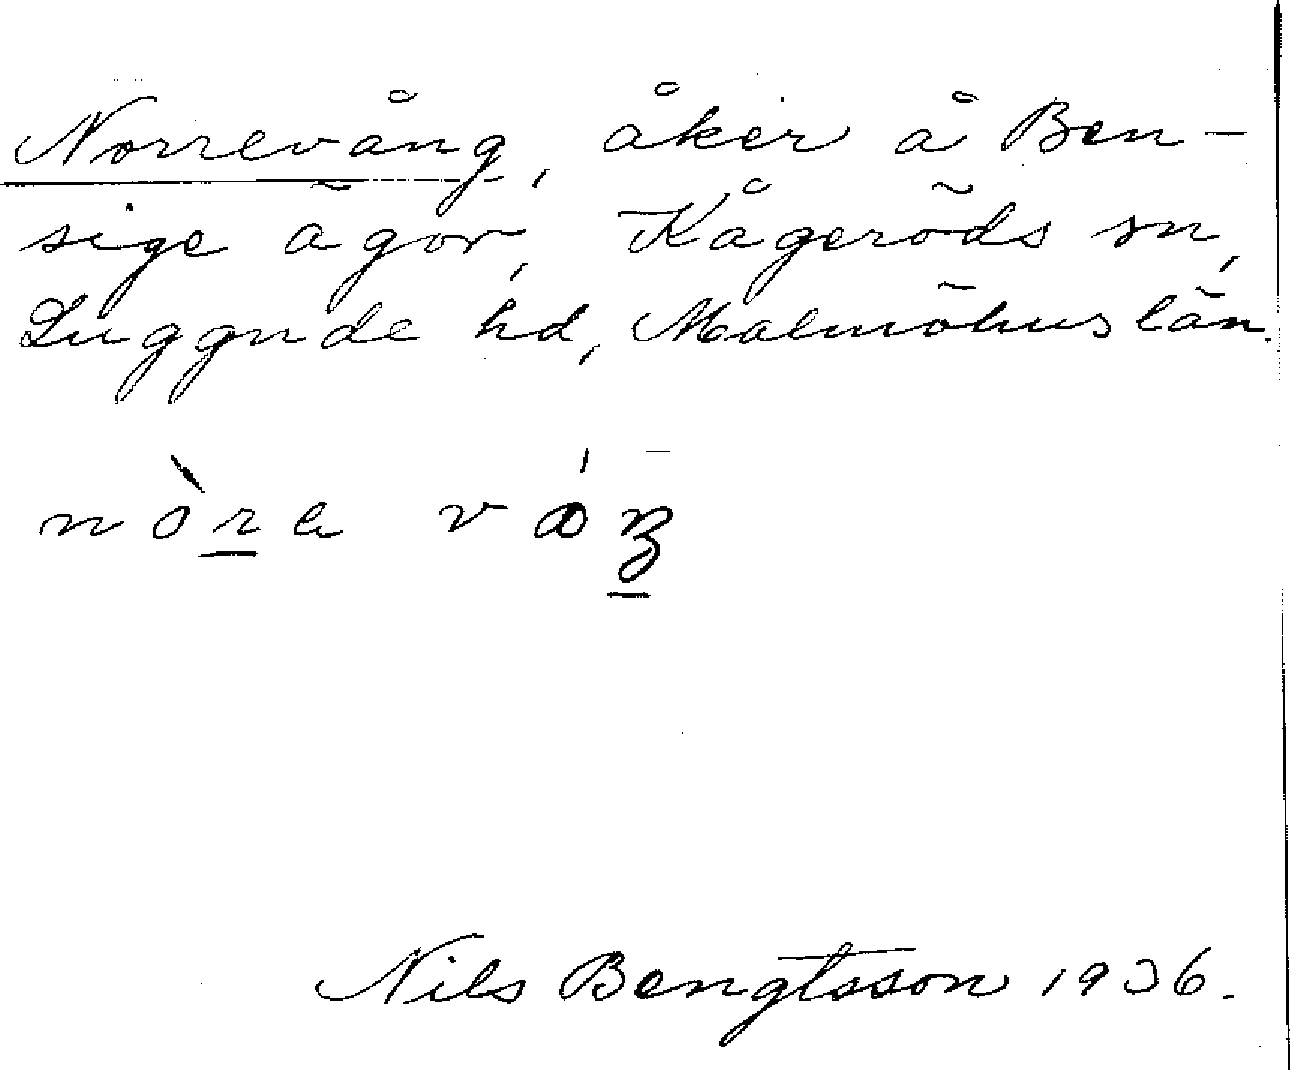 Norrevång, åker å Ben-
sige ägor, Kågeröds sn,
Luggude hd, Malmöhus län.
nòra
Nils Bengtsson 1936.